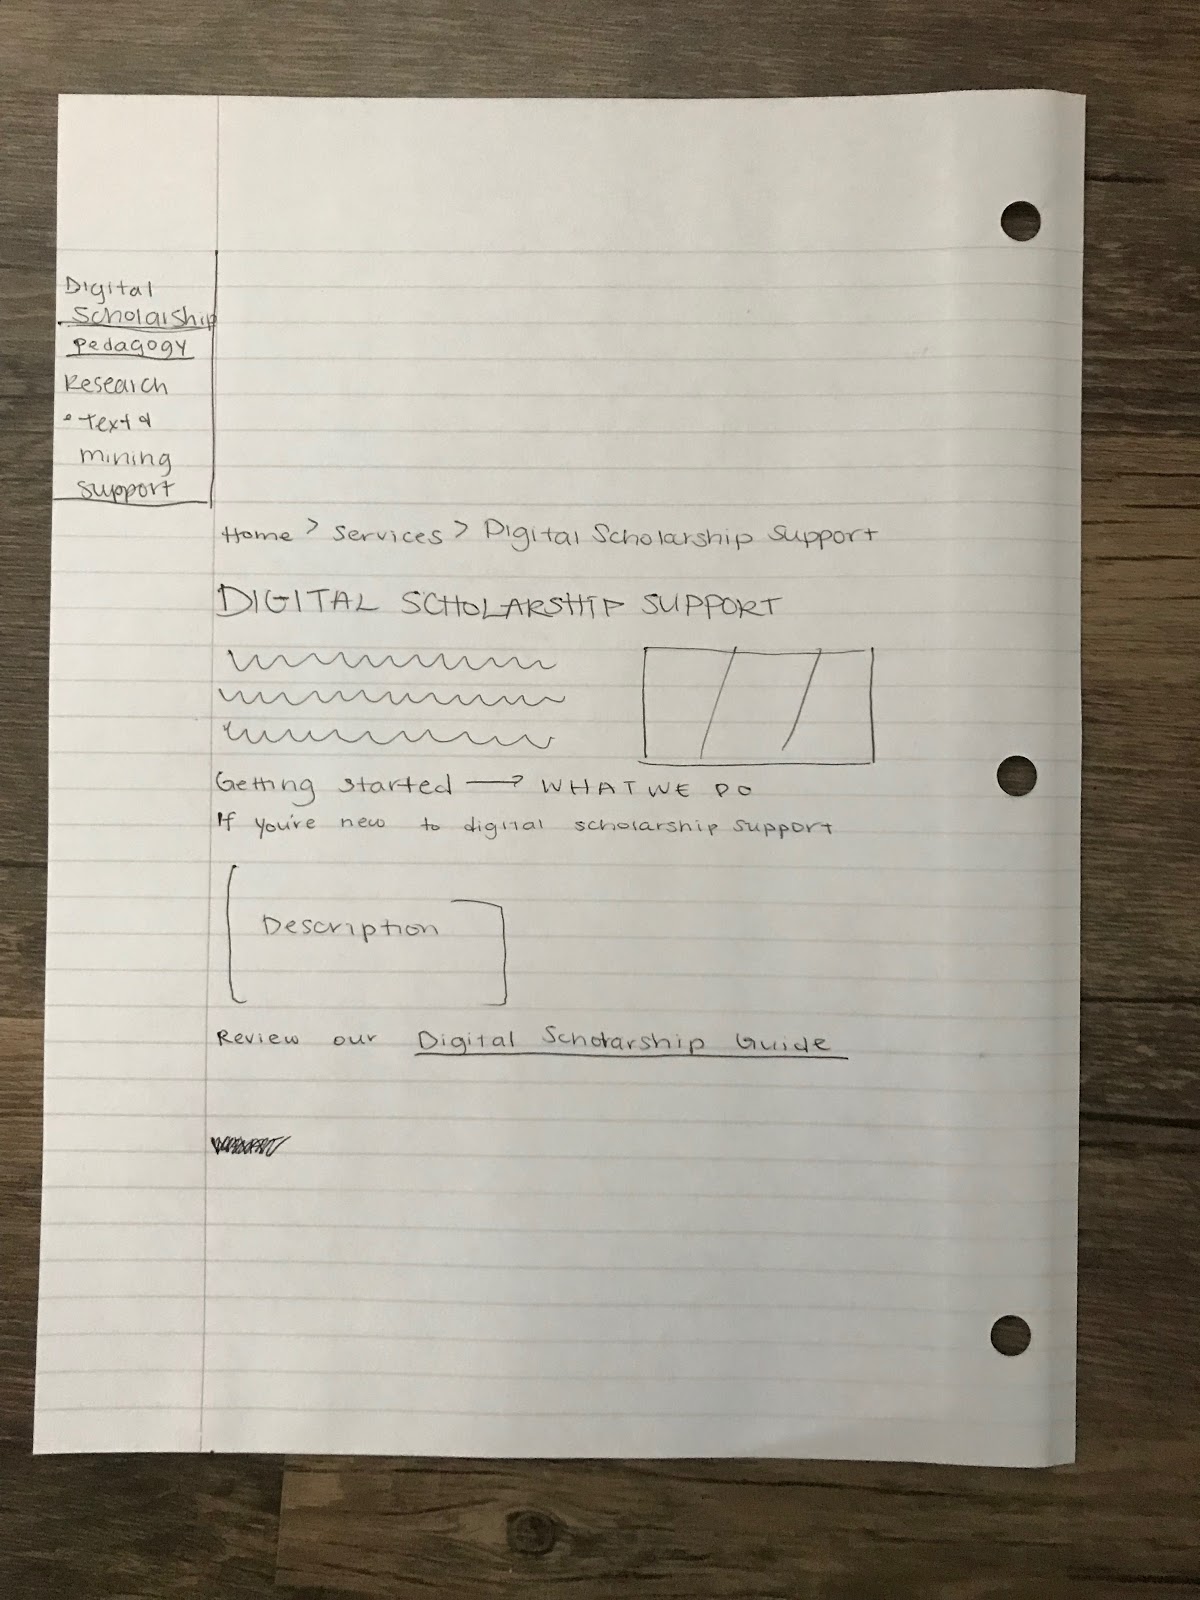 Digital
Scholarship
pedagogy
Research
• Text &
mining
support
Home > Services > Digital Scholarship Support
DIGITAL SCHOLARSHIP SUPPORT
Getting started → WHAT WE DO
If you're new to digital scholarship support
Description
Review our Digital Scholarship Guide